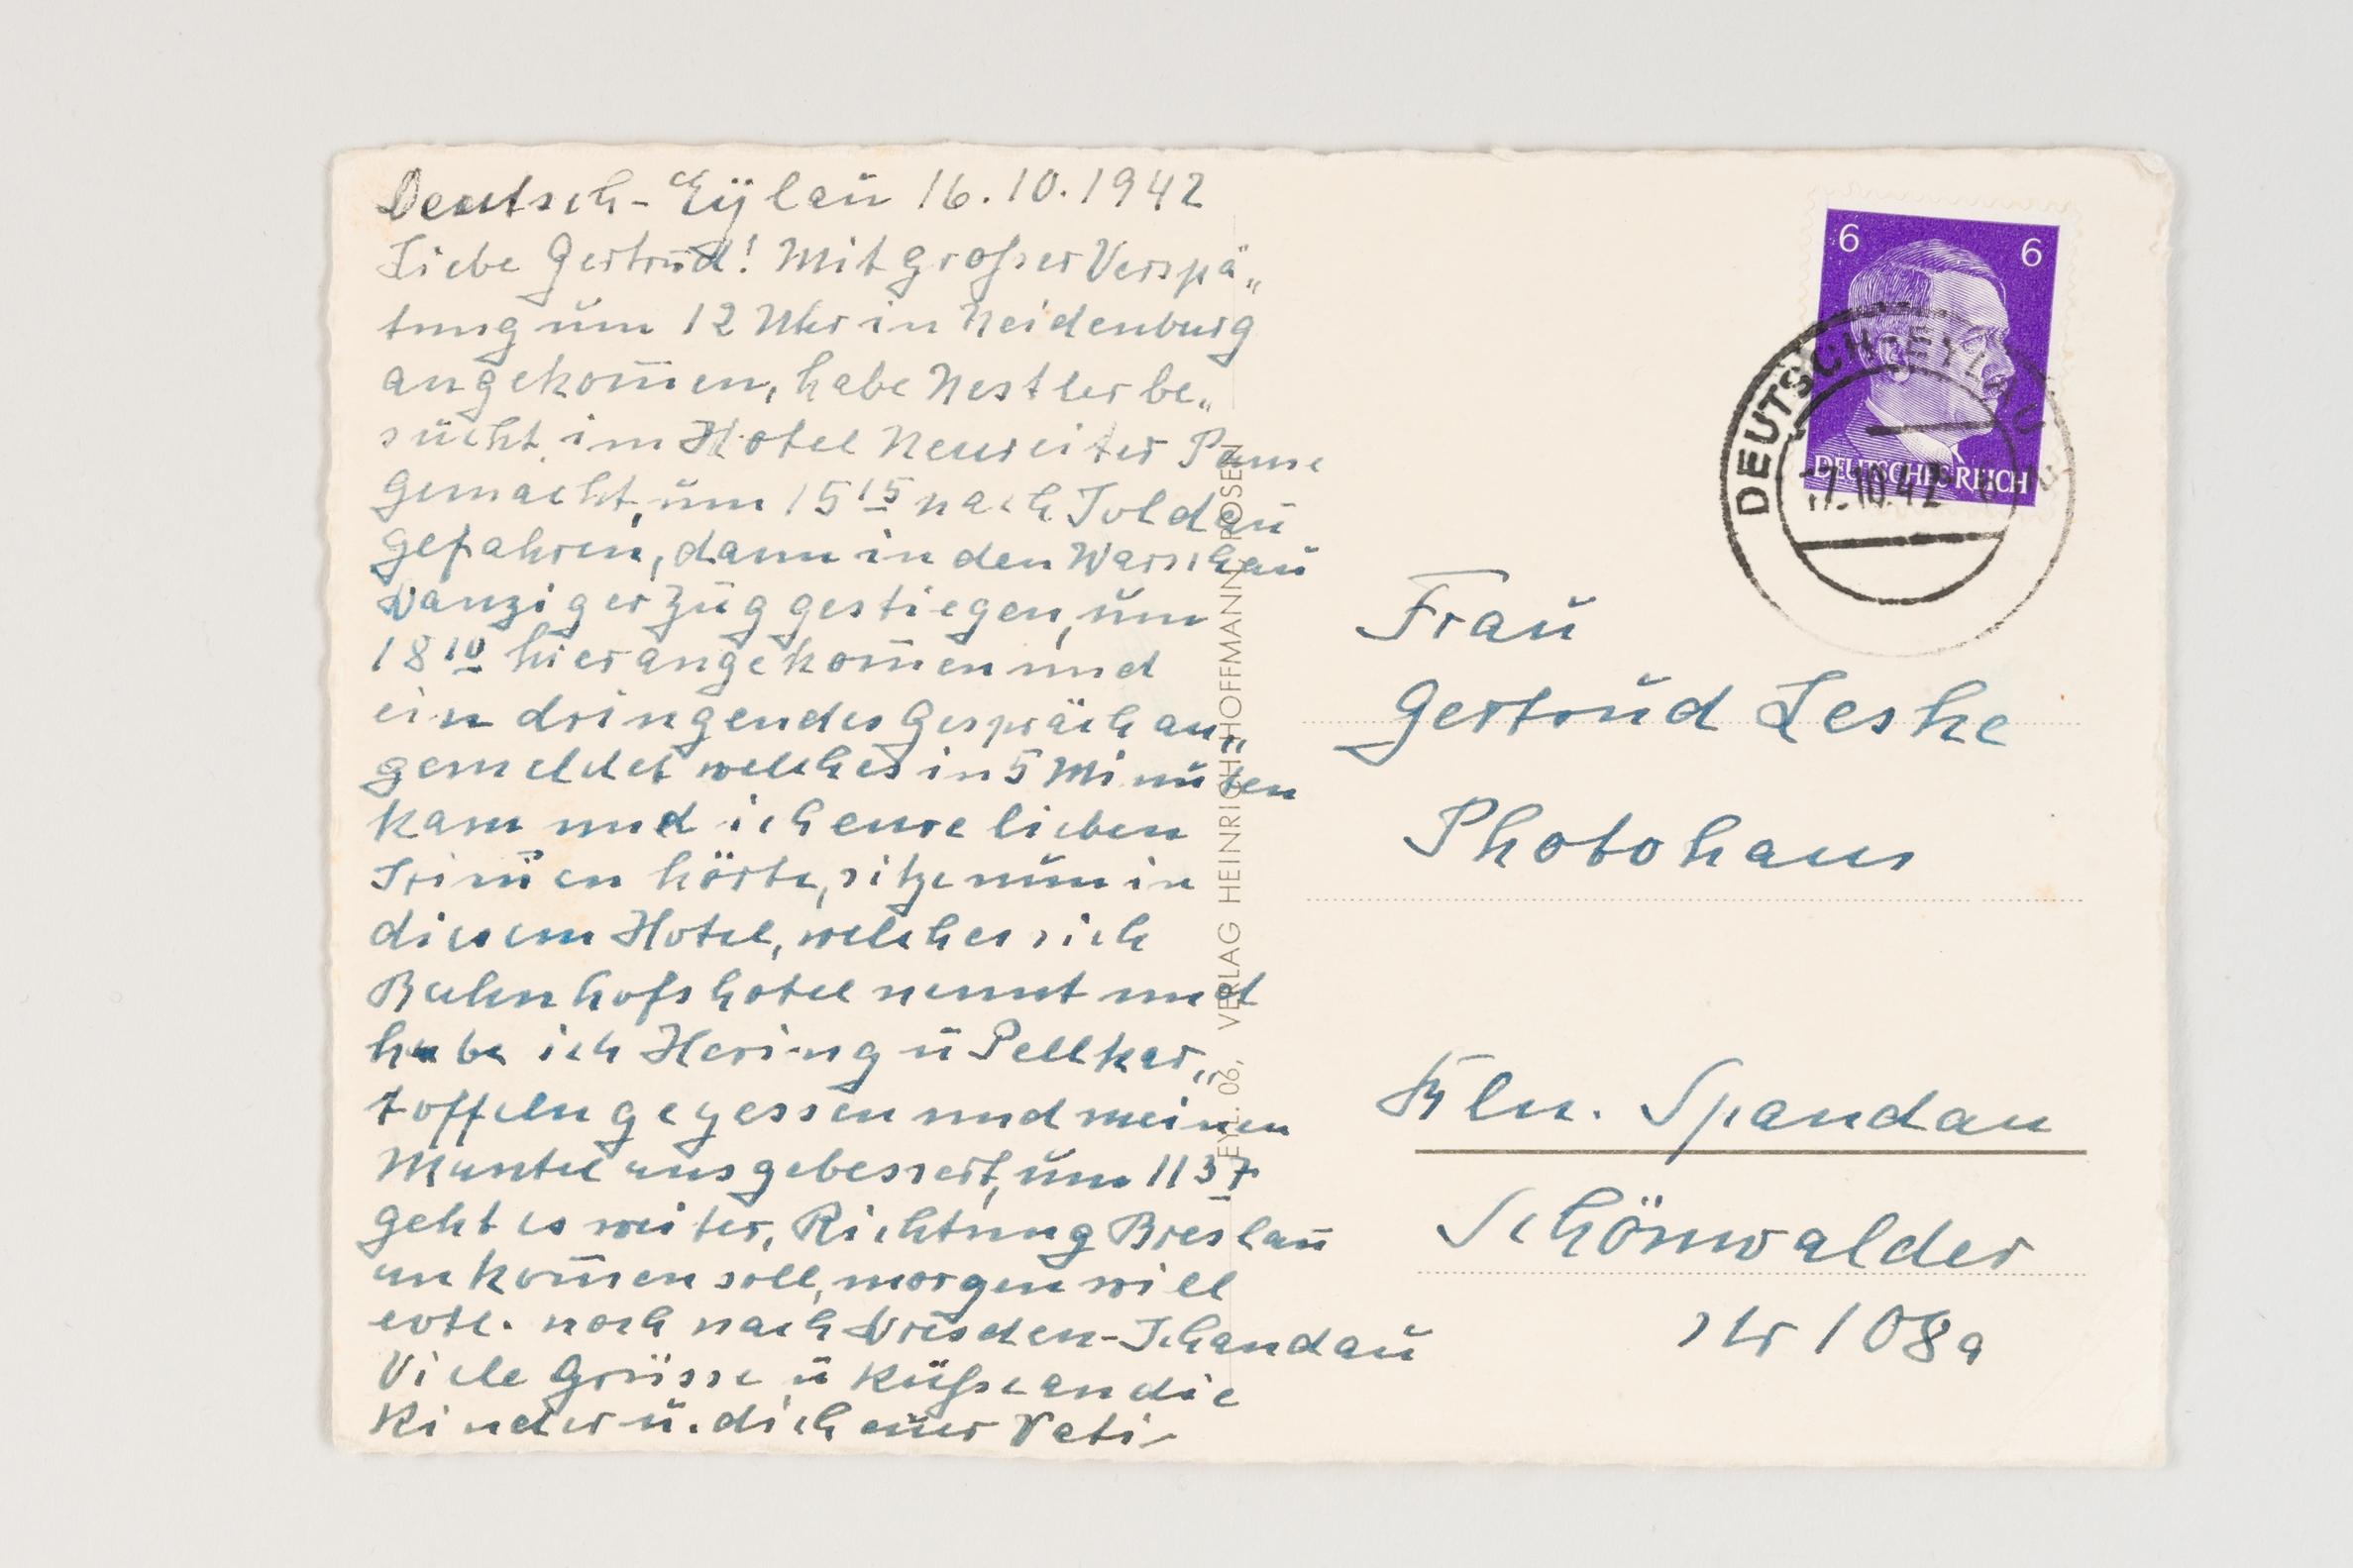 Deutsch-Eylau 16.10.1942
Liebe Gertrud! Mit großer Verspä„
tung um 12 Uhr in Neidenburg
angekom̅en, habe Nestler be„
sucht, im Hotel Neureiter Pause
gemacht, um 15 15 nach Soldau
gefahren, dann in den Warschau
Danziger Zug gestiegen, um
18 10 hier angekom̅en und
ein dringendes Gespräch an„
gemeldet welches in 5 Minuten
kam und ich eure lieben
Stim̅en hörte, sitze nun in
diesem Hotel, welches sich
Bahnhofshotel nennt und
habe ich Hering u Pellkar„
toffeln gegessen und meinen
Mantel ausgebessert, um 11 37
geht es weiter, Richtung Breslau
ankom̅en soll, morgen will
evtl. noch nach Dresden-Schandau
Viele Grüsse u Küße an die
Kinder u. dich euer Vati
EYL. 06, VERLAG HEINRICH HOFFMANN ROSEN
6 6
DEUTSCHES REICH
DEUTSCH-EYLAU
17.10.42
Frau
Gertrud Leske
Photohaus
Bln. Spandau
Schönwalder
str 108a